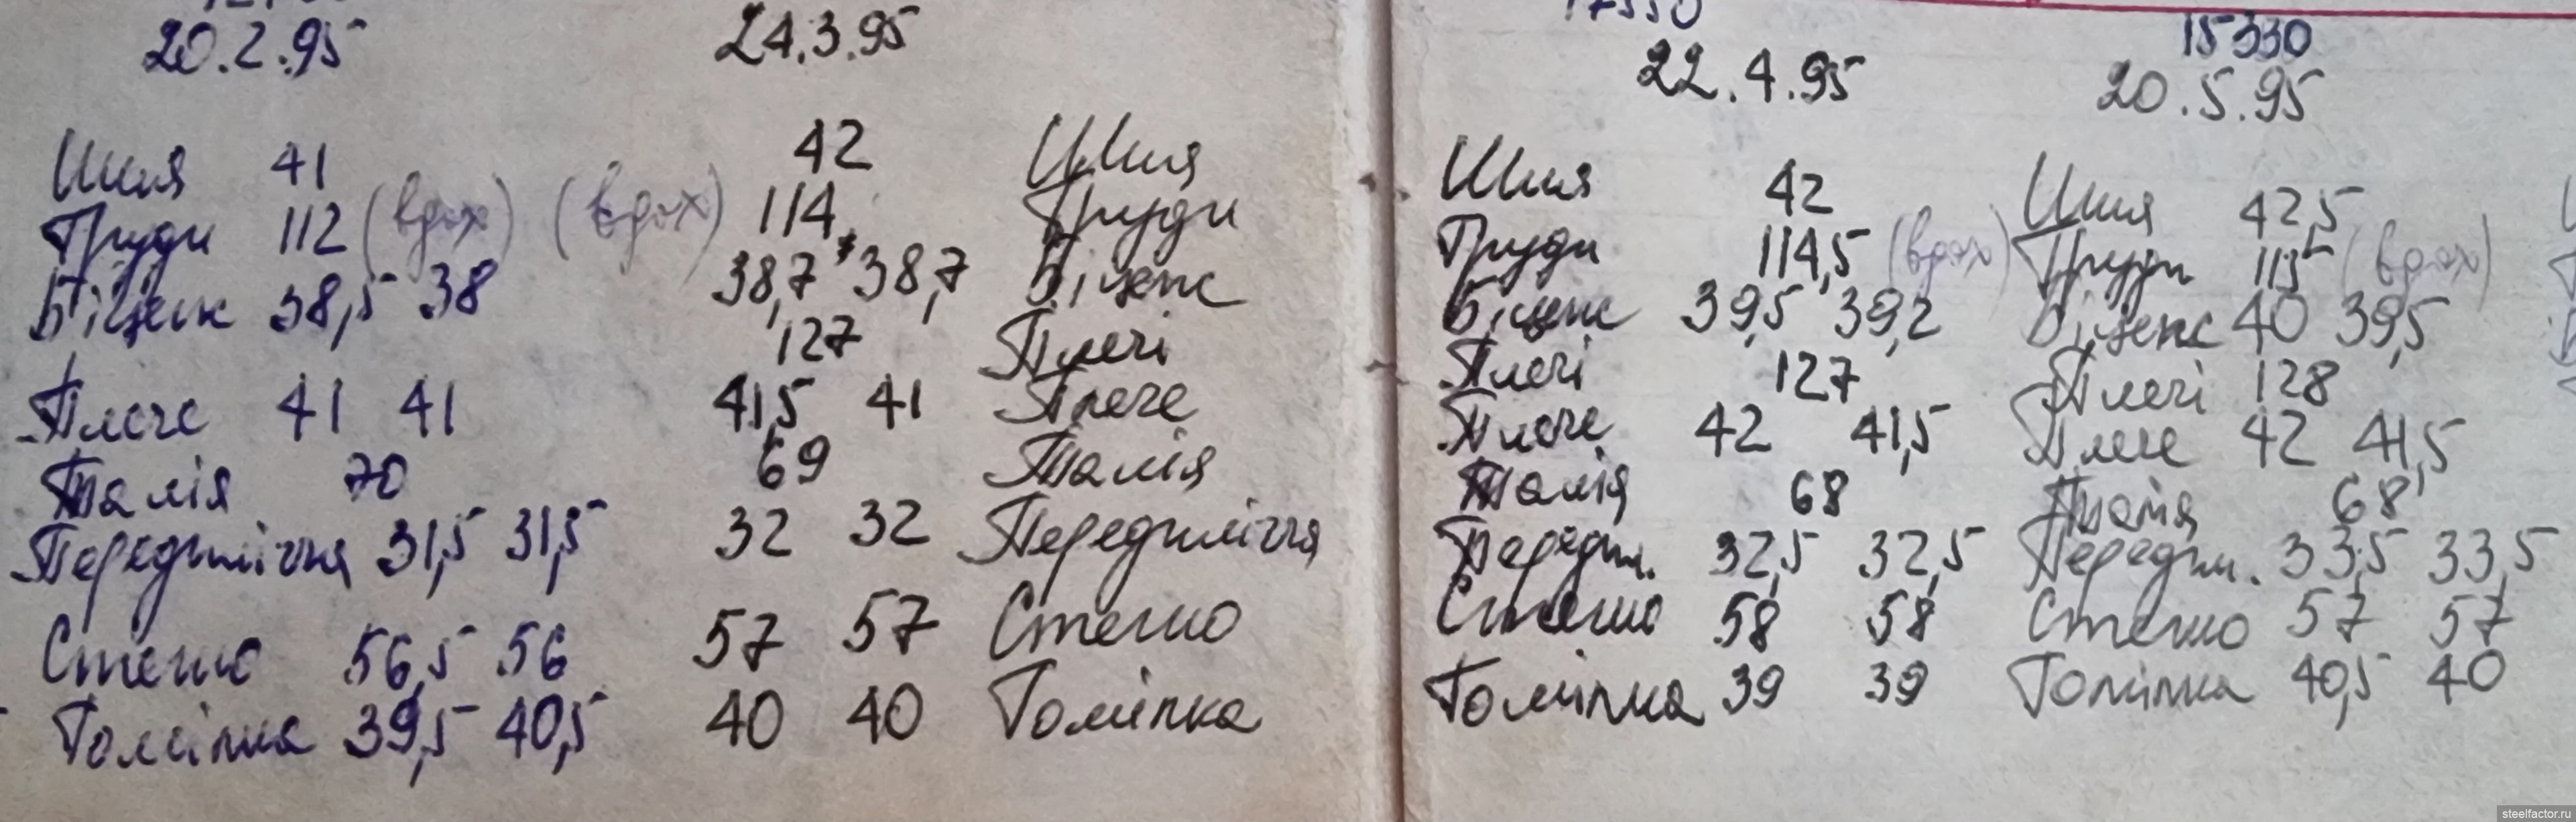 20.2.95
Шия 41
Груди 112 (вдох)
Біцепс 38,5 38
Плече 41 41
Талія 70
Передпліччя 31,5 31,5
Стегно 56,5 56
Гомілка 39,5 40,5
24.3.95
42 Шия
(вдох) 114 Груди
38,7 38,7 Біцепс
127 Плечі
41,5 41 Плече
69 Талія
32 32 Передпліччя
57 57 Стегно
40 40 Гомілка
22.4.95
Шия 42
Груди 114,5 (вдох)
Біцепс 39,5 39,2
Плечі 127
Плече 42 41,5
Талія 68
Передпл. 32,5 32,5
Стегно 58 58
Гомілка 39 39
15330
20.5.95
Шия 42,5
Груди 115 (вдох)
Біцепс 40 39,5
Плечі 128
Плече 42 41,5
Талія 68
Передпл. 33,5 33,5
Стегно 57 57
Гомілка 40,5 40
steelfactor.ru